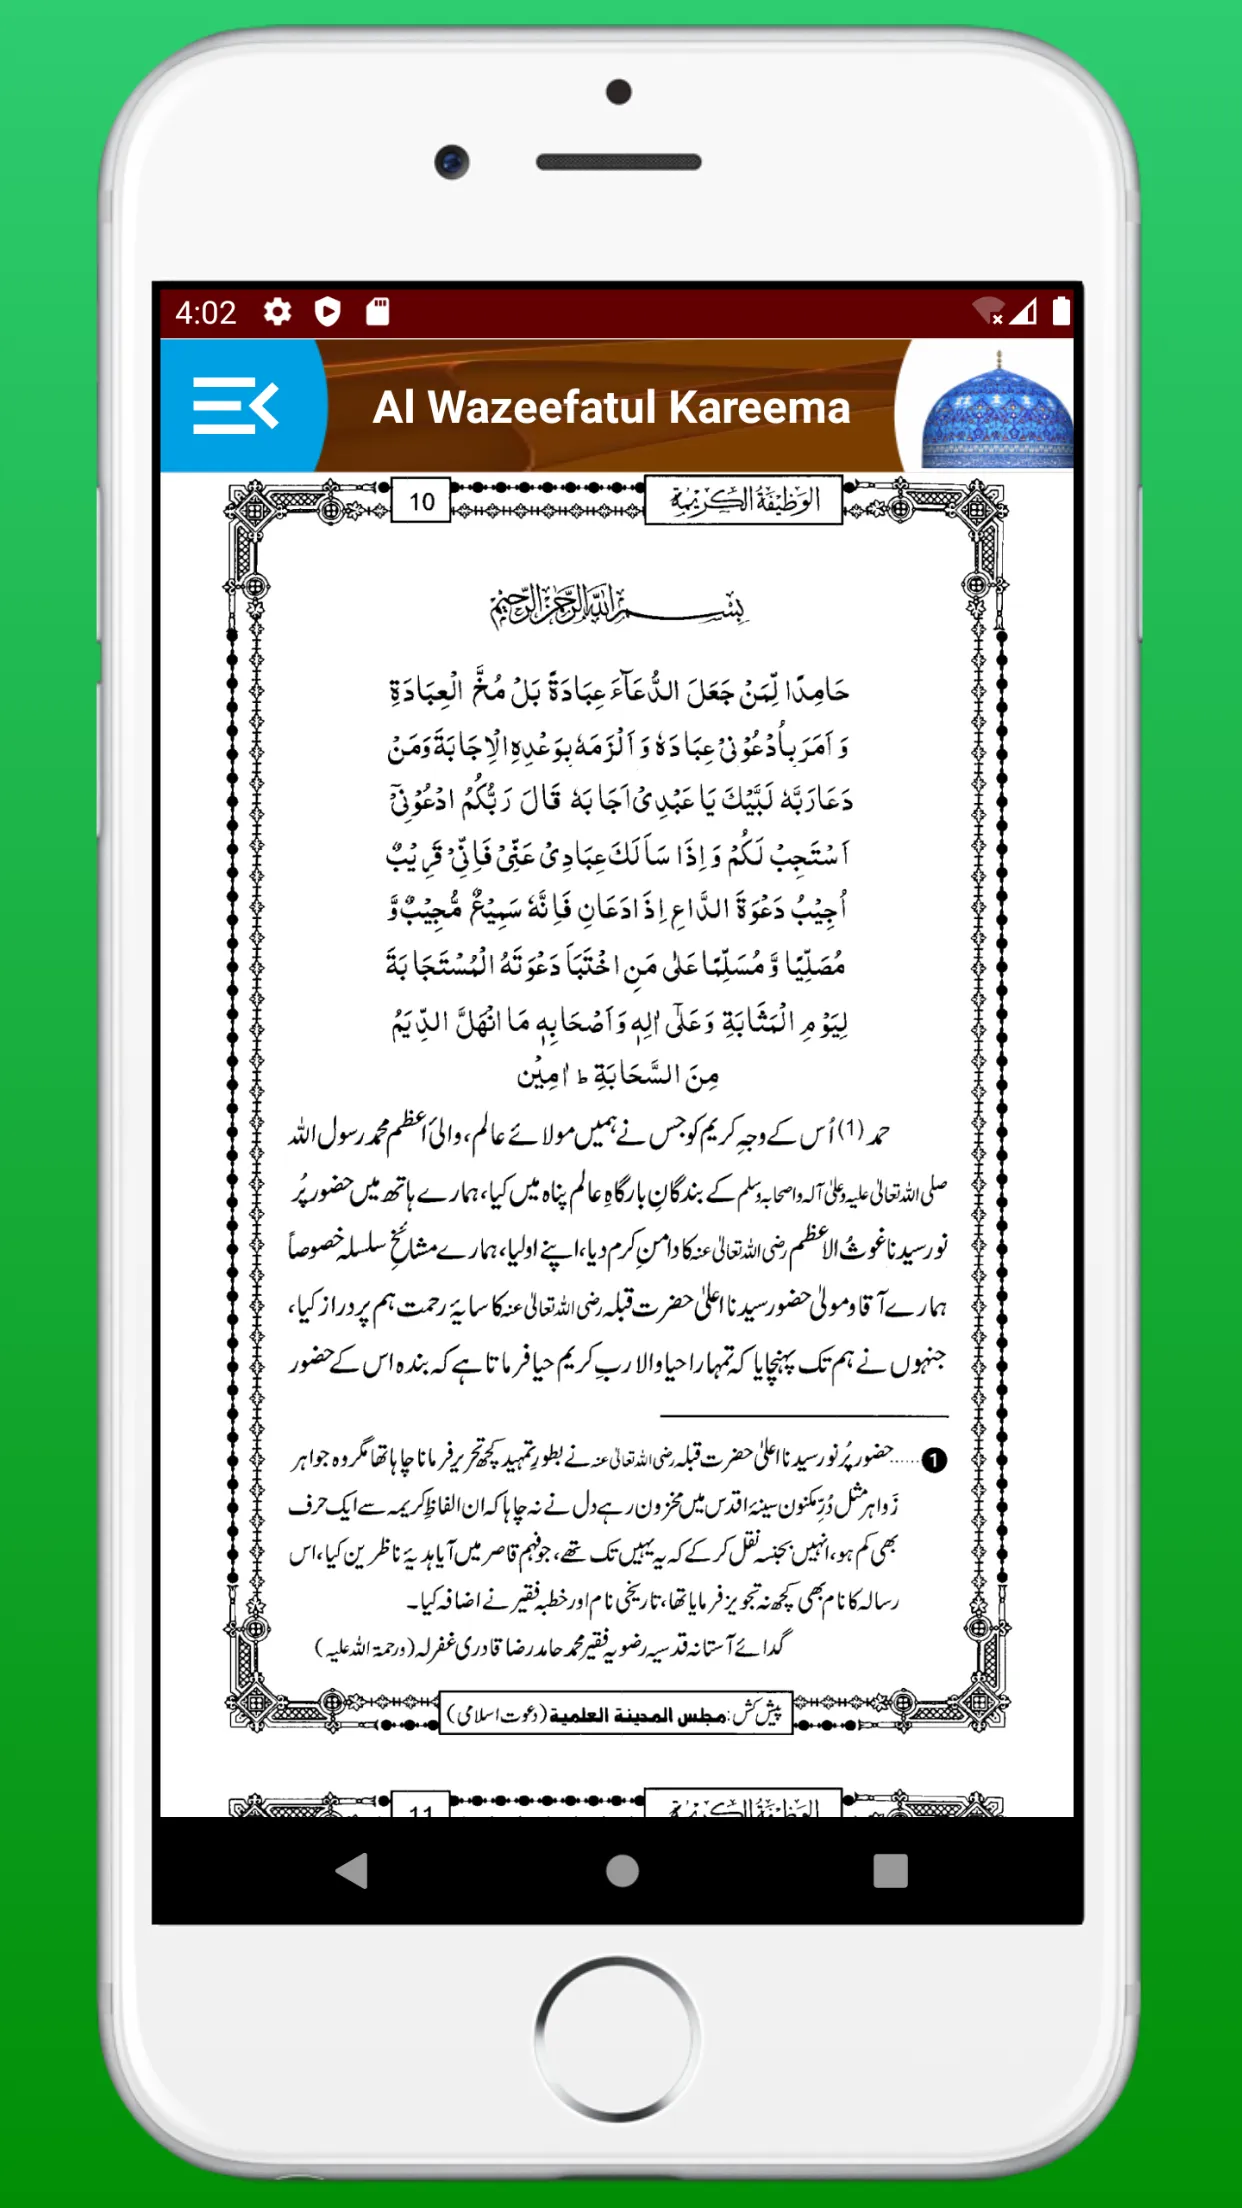 4:02
Al Wazeefatul Kareema
10
الوَظِيْفَةُ الكَرِيْمَة
بِسْمِ اللّٰهِ الرَّحْمٰنِ الرَّحِيْمِ
حَامِدًا لِّمَنْ جَعَلَ الدُّعَآءَ عِبَادَةً بَلْ مُخَّ الْعِبَادَةِ
وَاَمَرَ بِاُدْعُوْنِیْ عِبَادَهٗ وَاَلْزَمَهٗ بِوَعْدِهِ الْاِجَابَةَ وَمَنْ
دَعَا رَبَّهٗ لَبَّيْكَ يَا عَبْدِیْ اَجَابَهٗ قَالَ رَبُّكُمُ ادْعُوْنِیْٓ
اَسْتَجِبْ لَكُمْ وَاِذَا سَاَلَكَ عِبَادِیْ عَنِّیْ فَاِنِّیْ قَرِيْبٌ
اُجِيْبُ دَعْوَةَ الدَّاعِ اِذَا دَعَانِ فَاِنَّهٗ سَمِيْعٌ مُّجِيْبٌ وَّ
مُصَلِّيًا وَّمُسَلِّمًا عَلٰی مَنِ اخْتَبَاَ دَعْوَتَهُ الْمُسْتَجَابَةَ
لِيَوْمِ الْمَثَابَةِ وَعَلٰٓی اٰلِهٖ وَاَصْحَابِهٖ مَا انْهَلَّ الدِّيَمُ
مِنَ السَّحَابَةِ ط اٰمِيْن
حمد (1) اُس کے وجہِ کریم کو جس نے ہمیں مولائے عالم، والیٔ اعظم محمد رسول اللہ
صلی اللہ تعالیٰ علیہ وعلیٰ آلہ واصحابہ وسلم کے بندگانِ بارگاہِ عالم پناہ میں کیا، ہمارے ہاتھ میں حضور پُر
نور سیدنا غوثُ الاعظم رضی اللہ تعالیٰ عنہ کا دامنِ کرم دیا، اپنے اولیا، ہمارے مشائخِ سلسلہ خصوصاً
ہمارے آقا و مولیٰ حضور سیدنا اعلیٰ حضرت قبلہ رضی اللہ تعالیٰ عنہ کا سایۂ رحمت ہم پر دراز کیا،
جنہوں نے ہم تک پہنچایا کہ تمہارا حیا والا ربِ کریم حیا فرماتا ہے کہ بندہ اس کے حضور
1 ......حضور پُر نور سیدنا اعلیٰ حضرت قبلہ رضی اللہ تعالیٰ عنہ نے بطورِ تمہید کچھ تحریر فرمانا چاہا تھا مگر وہ جواہر
زَواہر مثل دُرِّ مکنون سینۂ اقدس میں مخزون رہے دل نے نہ چاہا کہ ان الفاظِ کریمہ سے ایک حرف
بھی کم ہو، انہیں بجنسہ نقل کرکے کہ یہ یہیں تک تھے، جو فہم قاصر میں آیا ہدیۂ ناظرین کیا، اس
رسالہ کا نام بھی کچھ نہ تجویز فرمایا تھا، تاریخی نام اور خطبہ فقیر نے اضافہ کیا۔
گدائے آستانہ قدسیہ رضویہ فقیر محمد حامد رضا قادری غفرلہ (ورحمۃ اللہ علیہ)
پیش کش: مجلس المدينة العلمية (دعوت اسلامی)
11
الوَظِيْفَةُ الكَرِيْمَة